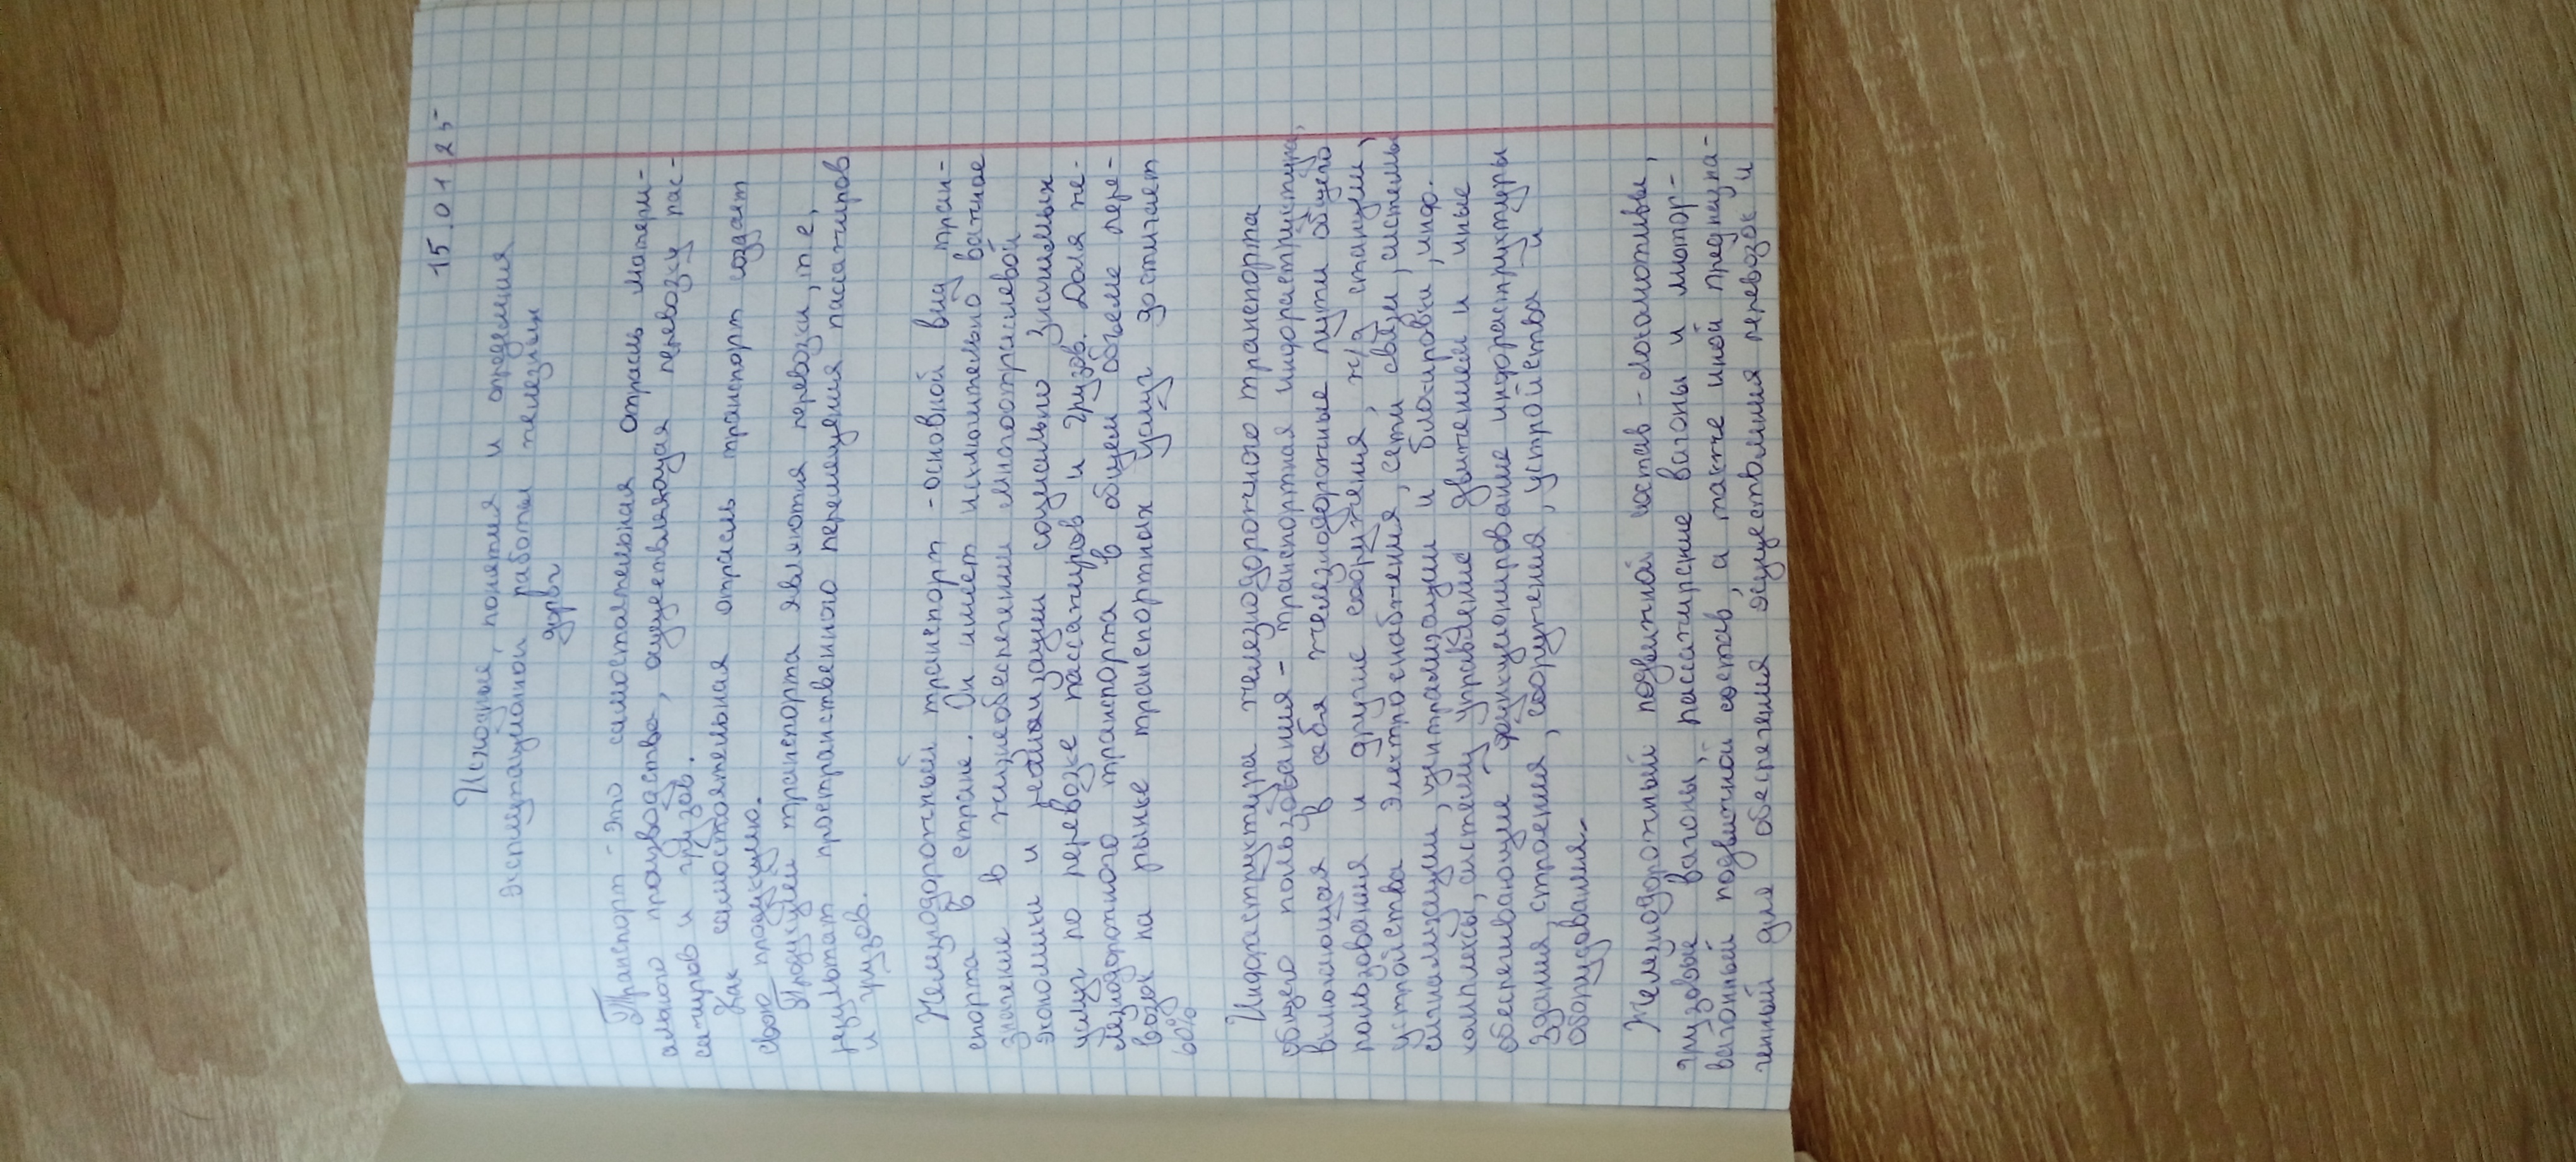 15.01 25
Исходные, понятия и определия
эксплутационой работы железных
дорвг
Транспорт - это самостоятельная отрасль матери-
ального производства, осуществляющая перевозку пас-
сажиров и грузов.
Как самостоятельная отрасль транспорт создаёт
свою продукцию.
Продукцией транспорта являются перевозки, т е,
результат пространственного перемещения пассажиров
и грузов.
Железнодорожный транспорт - основной вид тран-
спорта в стране. Он имеет исключительно важное
значение в жизнеобеспечении многоотраслевой
экономики и реализации социально значимых
услуг по перевозке пассажиров и грузов. Доля же-
лезнодорожного транспорта в общем объеме пере-
возок на рынке транспортных услуг достигает
60%
Инфраструктура железнодорожного транспорта
общего пользования - транспортная инфраструктура,
включающая в себя железнодорожные пути общего
пользования и другие сооружения, ж/д станции,
устройства электроснабжения, сети связи, системы
сигнализации, централизации и блокировки, инфо.
комплексы, систему управление движением и иные
обеспечивающие функционирование инфраструктуры
здания, строения, сооружения, устройства и
оборудования.
Железнодорожный подвижной состав - локомотивы,
грузовые вагоны, пассажирские вагоны и мотор-
вагонный подвижной состав, а также иной предназна-
ченный для обеспечения осуществления перевозок и